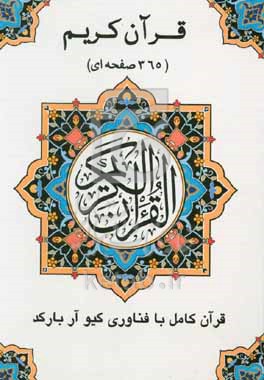 قرآن کریم
(۳۶۵ صفحه ای)
القرآن الکریم
قرآن کامل با فناوری کیو آر بارکد